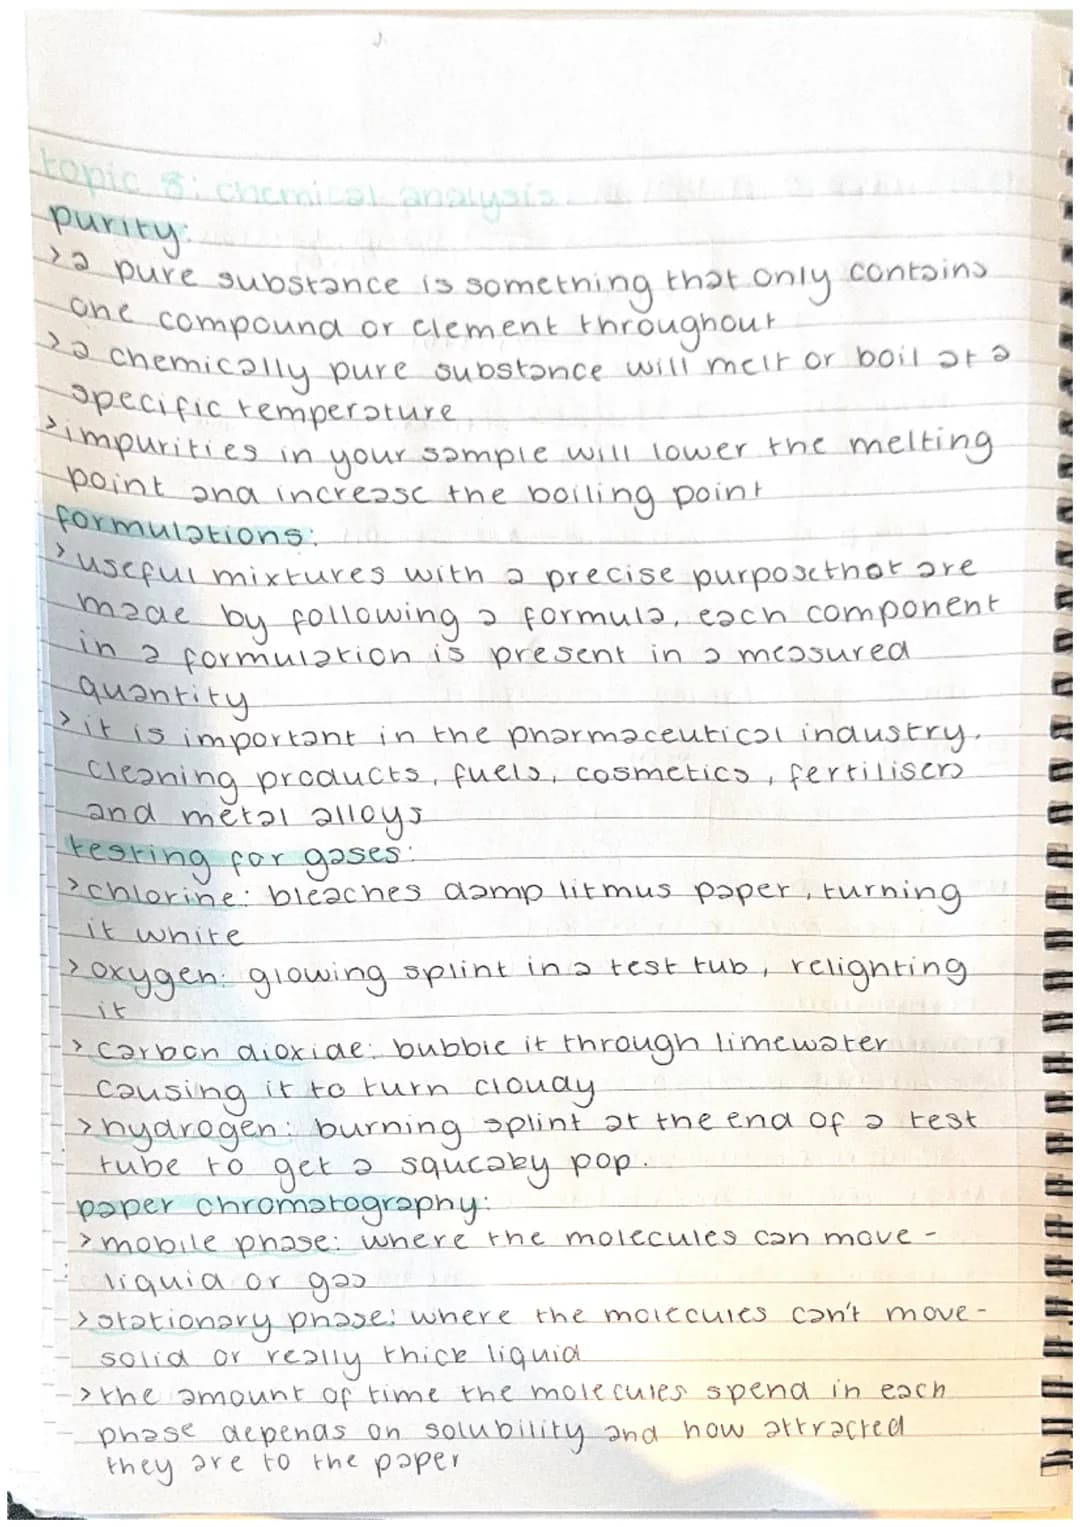 topic 8: chemical analysis
purity:
>a pure substance is something that only contains
one compound or element throughout
>a chemically pure substance will melt or boil at a
specific temperature
>impurities in your sample will lower the melting
point and increase the boiling point
formulations:
>useful mixtures with a precise purpose that are
made by following a formula, each component
in a formulation is present in a measured
quantity
>it is important in the pharmaceutical industry.
cleaning products, fuels, cosmetics, fertilisers
and metal alloys
testing for gases:
>chlorine: bleaches damp litmus paper, turning
it white
>oxygen: glowing splint in a test tub, relighting
it
>carbon dioxide: bubble it through limewater
causing it to turn cloudy
>hydrogen: burning splint at the end of a test
tube to get a squeaky pop.
paper chromatography:
>mobile phase: where the molecules can move -
liquid or gas
>stationary phase: where the molecules can't move -
solid or really thick liquid
>the amount of time the molecules spend in each
phase depends on solubility and how attracted
they are to the paper